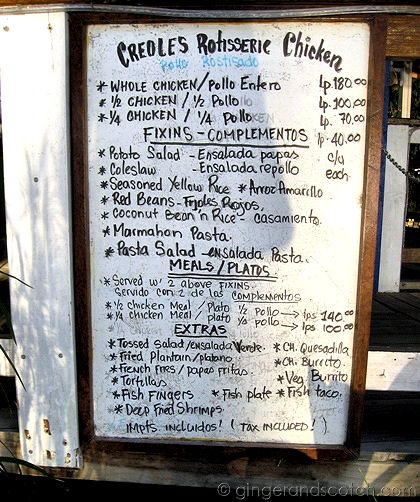 CREOLES Rotisserie Chicken
Pollo Rostisado
* WHOLE CHICKEN/Pollo Entero Lp.180.00
* ½ CHICKEN / ½ Pollo Lp.100.00
* ¼ CHICKEN / ¼ Pollo Lp. 70.00
FIXINS - COMPLEMENTOS Lp.40.00
* Potato Salad - Ensalada papas c/u
* Coleslaw - Ensalada repollo each
* Seasoned Yellow Rice * Arroz Amarillo
* Red Beans - Frijoles Rojos.
* Coconut Bean'n Rice - casamiento.
* Marmahon Pasta.
* Pasta Salad - ensalada Pasta.
MEALS/PLATOS
* Served w/ 2 above FIXINS.
Servido con 2 de las COMPLEMENTOS
* ½ chicken Meal / Plato ½ pollo → lps 140.00
* ¼ chicken Meal / plato ¼ pollo → lps 100.00
EXTRAS
* Tossed Salad/ensalada Verde. * CH. Quesadilla
* Fried Plantain/platano * CH. Burrito
* French fries / papas fritas. * Veg. Burrito
* Tortillas * Fish taco.
* Fish Fingers * Fish plate
* Deep Fried Shrimps.
Impts. incluidos! ( TAX INCLUDED! )
@ gingerandscotch.com